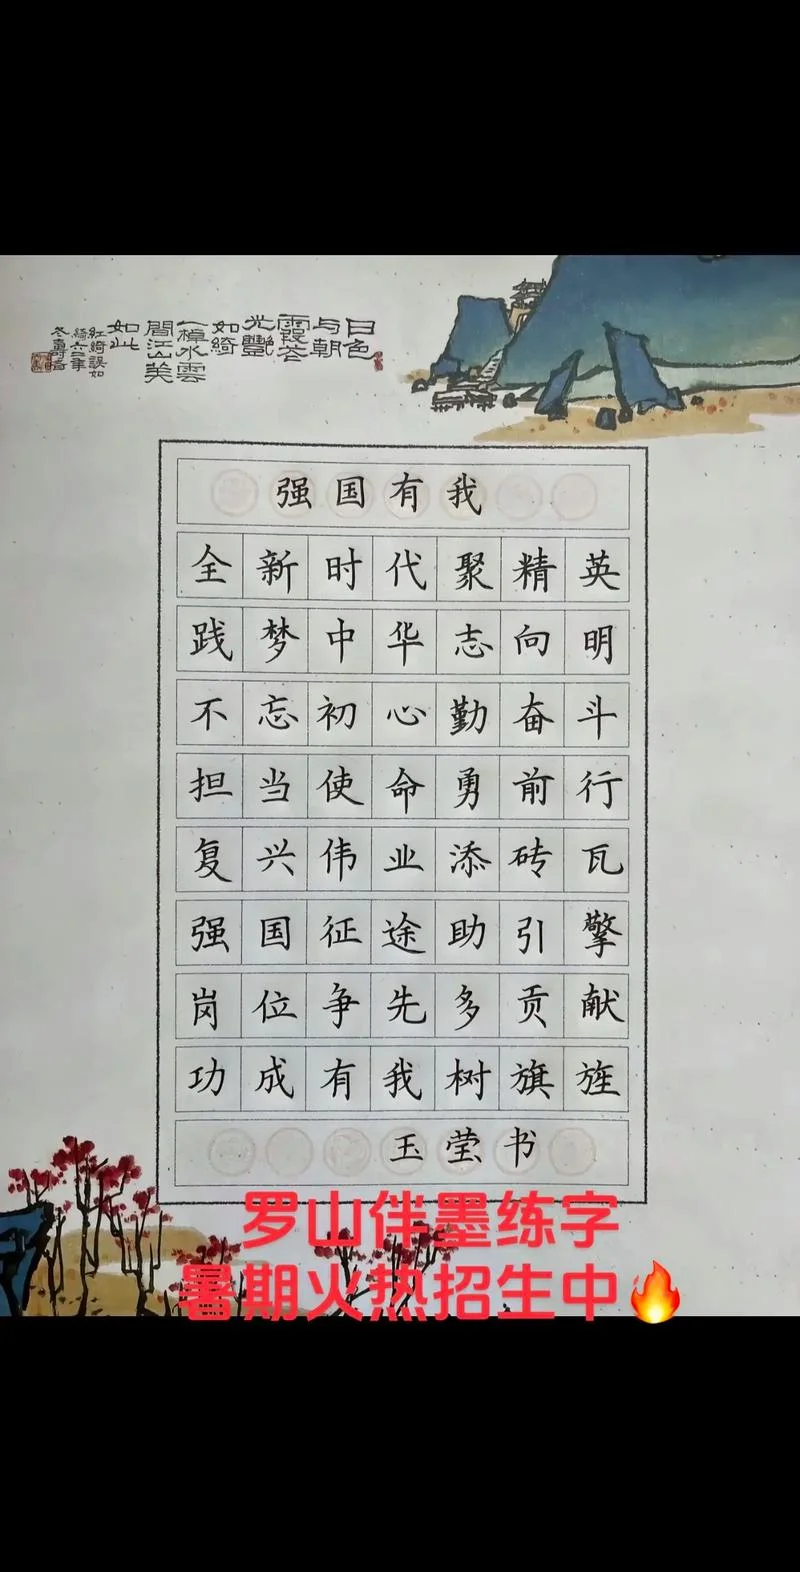 日色
与朝
霞花
光艷
如綺
一棹水雲
間江山美
如此
强国有我
全新时代聚精英
践梦中华志向明
不忘初心勤奋斗
担当使命勇前行
复兴伟业添砖瓦
强国征途助引擎
岗位争先多贡献
功成有我树旗旌
玉莹书
罗山伴墨练字
暑期火热招生中🔥